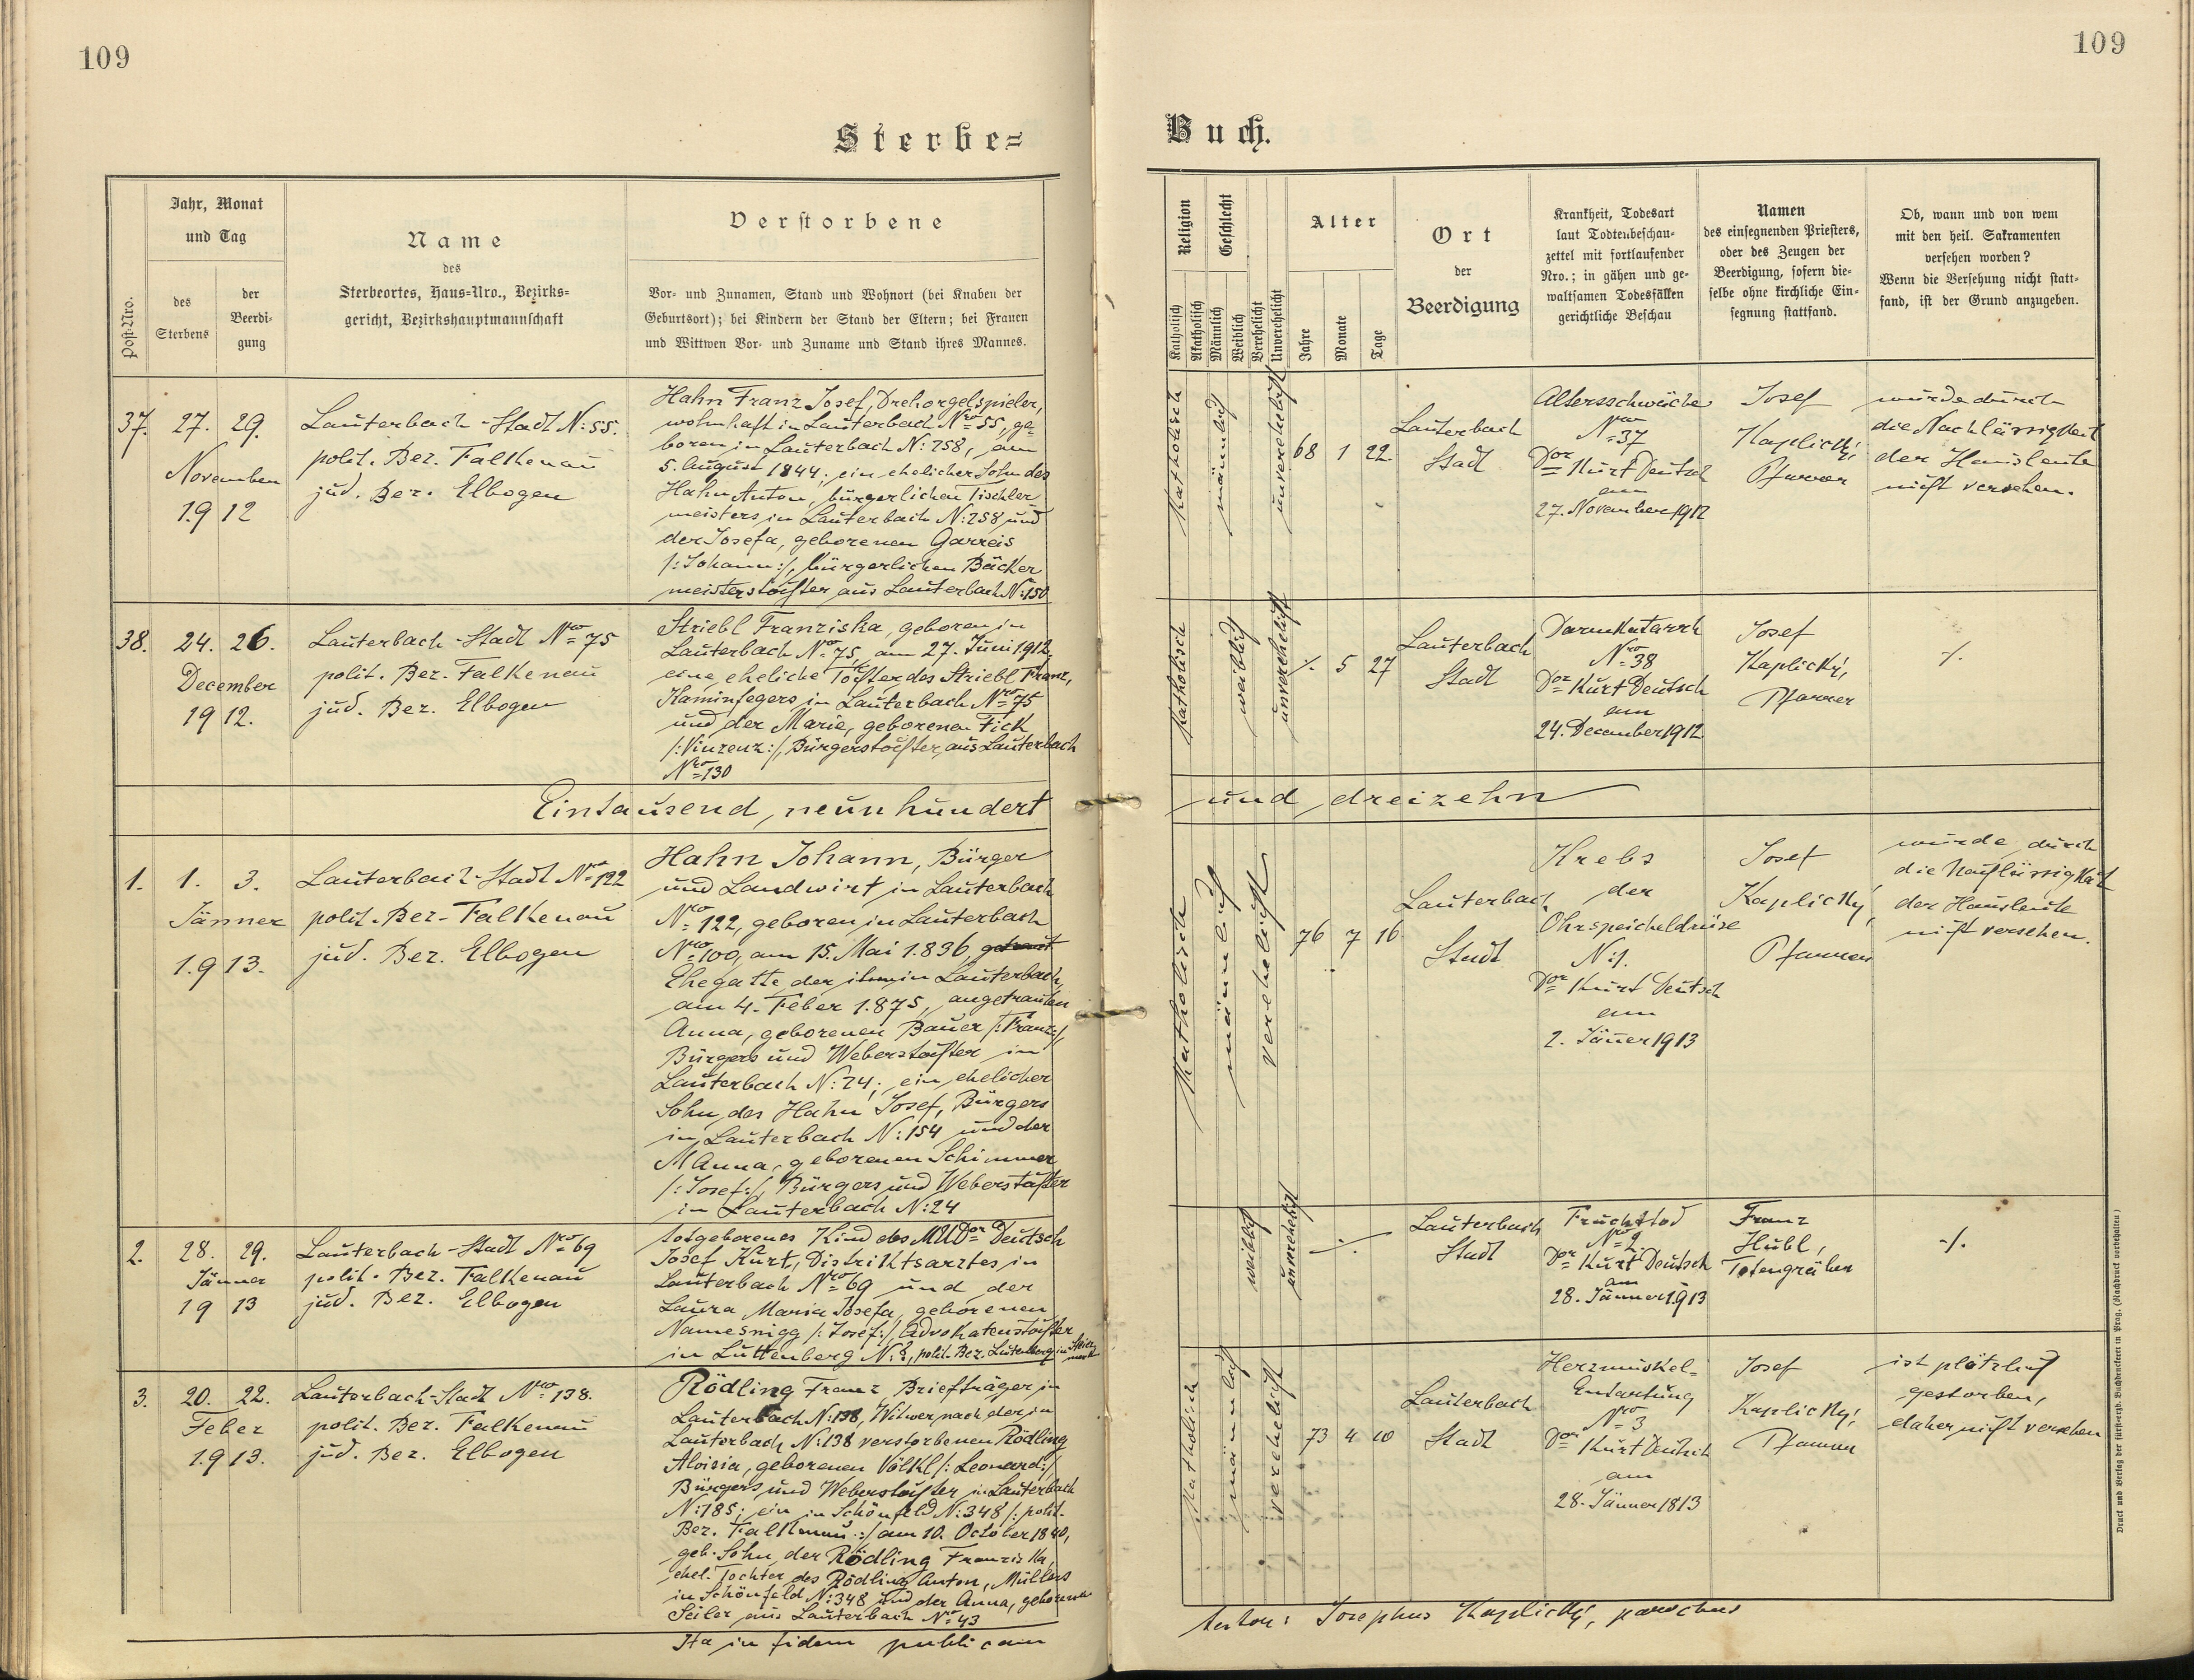 109
109
Sterbe=
Buch.
Post-Nro.
Jahr, Monat
und Tag
des
Sterbens
der
Beerdi-
gung
Name
des
Sterbeortes, Haus-Nro., Bezirks-
gericht, Bezirkshauptmannschaft
Verstorbene
Vor- und Zunamen, Stand und Wohnort (bei Knaben der
Geburtsort); bei Kindern der Stand der Eltern; bei Frauen
und Wittwen Vor- und Zuname und Stand ihres Mannes.
Religion
Katholisch
Akatholisch
Geschlecht
Männlich
Weiblich
Verehelicht
Unverehelicht
Alter
Jahre
Monate
Tage
Ort
der
Beerdigung
Krankheit, Todesart
laut Todtenbeschau-
zettel mit fortlaufender
Nro.; in gähen und ge-
waltsamen Todesfällen
gerichtliche Beschau
Namen
des einsegnenden Priesters,
oder des Zeugen der
Beerdigung, sofern die-
selbe ohne kirchliche Ein-
segnung stattfand.
Ob, wann und von wem
mit den heil. Sakramenten
versehen worden?
Wenn die Versehung nicht statt-
fand, ist der Grund anzugeben.
37.
27. 29.
November
1912
Lauterbach-Stadt N: 55.
polit. Bez. Falkenau
jud. Bez. Elbogen
Hahn Franz Josef, Drehorgelspieler,
wohnhaft in Lauterbach Nro 55, ge-
boren in Lauterbach N: 258, am
5. August 1844; ein ehelicher Sohn des
Hahn Anton, bürgerlichen Tischler-
meisters in Lauterbach N: 258 und
der Josefa, geborenen Garreis
/: Johann :/, bürgerlichen Bäcker
meisterstochter aus Lauterbach N: 150
katholisch
männlich
unverehelicht
68 1 22.
Lauterbach
Stadt
Altersschwäche
Nro 37
Dor Kurt Deutsch
am
27. November 1912
Josef
Kaplický,
Pfarrer
wurde durch
die Nachlässigkeit
der Hausleute
nicht versehen.
38.
24. 26.
December
1912.
Lauterbach-Stadt Nro 75
polit. Bez. Falkenau
jud. Bez. Elbogen
Striebl Franziska, geboren in
Lauterbach No 75, am 27. Juni 1912,
eine eheliche Tochter des Striebl Franz,
Kaminfegers in Lauterbach Nro 75
und der Marie, geborenen Fick
/: Vinzenz :/, Bürgerstochter, aus Lauterbach
Nro 130
katholisch
weiblich
unverehelicht
⁒ 5 27
Lauterbach
Stadt
Darmkatarrh
Nro 38
Dor Kurt Deutsch
am
24. December 1912
Josef
Kaplický,
Pfarrer
⁒
Eintausend, neunhundert
und dreizehn
1.
1. 3.
Jänner
1913.
Lauterbach-Stadt Nro 122
polit. Bez. Falkenau
jud. Bez. Elbogen
Hahn Johann, Bürger
und Landwirt in Lauterbach
Nro 122, geboren in Lauterbach
Nro 100, am 15. Mai 1836, getraut
Ehegatte der ihm in Lauterbach,
am 4. Feber 1875, angetrauten
Anna, geborenen Bauer /: Franz :/,
Bürgers und Weberstochter in
Lauterbach N: 24; ein ehelicher
Sohn, des Hahn Josef, Bürgers
in Lauterbach N: 154 und der
M Anna, geborenen Schimmer
/: Josef :/, Bürgers und Weberstochter
in Lauterbach N: 24
katholisch
männlich
verehelicht
76 7 16
Lauterbach
Stadt
Krebs
der
Ohrspeicheldrüse
N: 1.
Dor Kurt Deutsch
am
2. Jänner 1913
Josef
Kaplický,
Pfarrer
wurde durch
die Nachlässigkeit
der Hausleute
nicht versehen.
2.
28. 29.
Jänner
1913
Lauterbach-Stadt Nro 69
polit. Bez. Falkenau
jud. Bez. Elbogen
totgeborenes Kind des MUDor Deutsch
Josef Kurt, Distriktsarztes in
Lauterbach Nro 69 und der
Laura Maria Josefa, geborenen
Namesnigg /: Josef :/, Advokatenstochter
in Luttenberg N: ?, polit. Bez. Luttenberg in Steier
mark
weiblich
unverehelicht
⁒
Lauterbach
Stadt
Fruchttod
Nro 2
Dor Kurt Deutsch
am
28. Jänner 1913
Franz
Hubl,
Totengräber
⁒
3.
20. 22.
Feber
1913.
Lauterbach-Stadt Nro 138.
polit. Bez. Falkenau
jud. Bez. Elbogen
Rödling Franz, Briefträger in
Lauterbach N: 138, Witwer, nach der in
Lauterbach N: 138 verstorbenen Rödling
Aloisia, geborenen Völkl /: Leonard :/
Bürgers und Weberstochter in Lauterbach
N: 185; ein in Schönfeld N: 348 /: polit.
Bez. Falkenau :/ am 10. October 1840,
geb. Sohn der Rödling Franziska,
ehel. Tochter des Rödling Anton, Müllers
in Schönfeld N: 348 und der Anna, geborenen
Seiler aus Lauterbach Nro 43
katholisch
männlich
verehelicht
73 4 10
Lauterbach
Stadt
Herzmuskel-
Entartung
Nro 3
Dor Kurt Deutsch
am
28. Jänner 1813
Josef
Kaplický,
Pfarrer
ist plötzlich
gestorben,
daher nicht versehen
Ita in fidem publicam
Josephus Kaplický, parochus
Druck und Verlag der fürsterzb. Buchdruckerei in Prag. (Nachdruck vorbehalten)